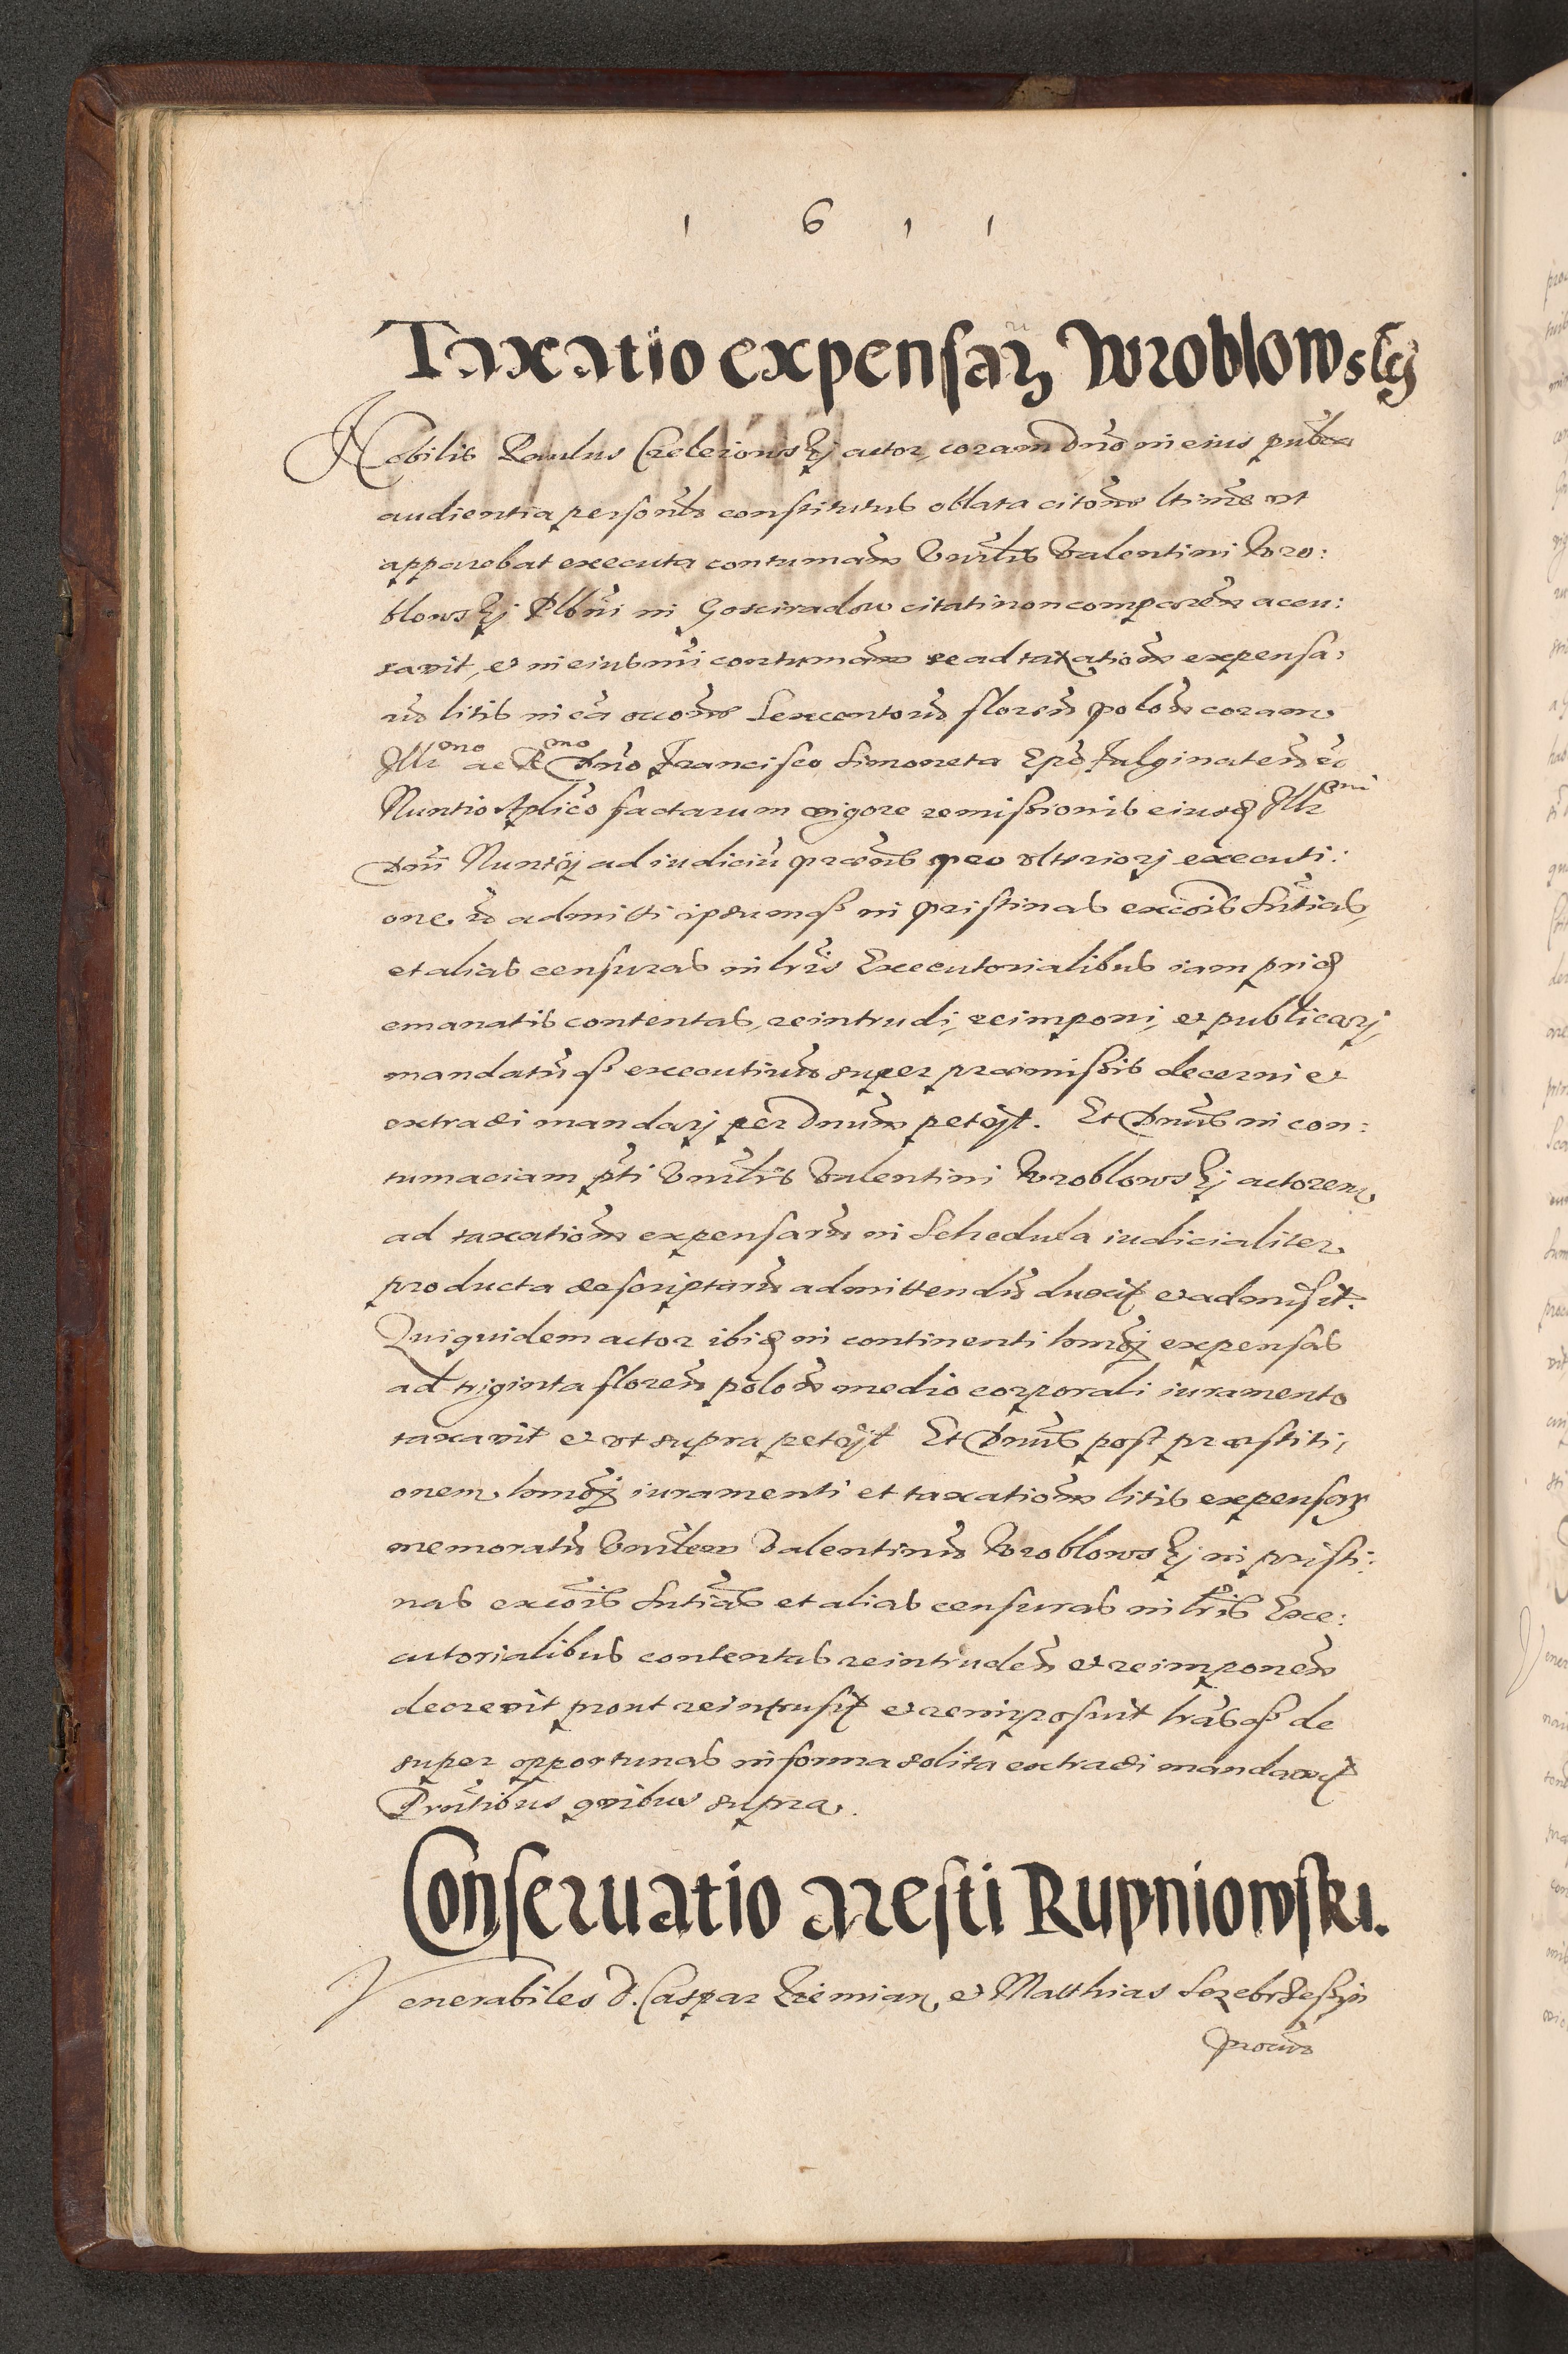 1 6 1 1
Taxatio expensarꝫ Wroblowskÿ
Nobilis Paulus Czelezowskÿ actor, coram Dño in eius publca
audientia personlr constitutus oblata citõne ltime ut
apparebat executa contumam Vnrlis Valentini Wro:
blowskÿ Plbñi in Gosciradow citati non comparen accu:
savit, et in eiusmoi contumam se ad taxation expensa,
rũ litis in cã occõne Sexcentorũ floreñ polon coram
Illrmo ac Rmo Dño Francisco Simoneta Epo Fulginateñ et
Nuntio Aplico factarum vigore remissionis eiusd Illrmi
Dñi Nuntÿ ad iudiciũ præñs pro ulteriorj executi:
one ĩo admitti ipsumqȝ in pristinas excõis sñtias,
et alias censuras in lris Executorialibus iam prid
emanatis contentas, reintrudi, reimponi, et publicarj,
mandatũqȝ executivũ super præmissis decerni et
extradi mandarj per Dnum petÿt. Et Dnus in con:
tumaciam pti Vnrlis Valentini Wroblowskÿ actorem
ad taxationẽ expensarũ in Schedula iudicialiter
producta descriptarũ admittendũ duxit et admisit.
Qui quidem actor ibid in continenti hmõj expensas
ad triginta floreñ polon medio corporali iuramento
taxavit et ut supra petÿt Et Dnus post præstiti,
onem hmõj iuramenti et taxationẽ litis expensarꝫ
memoratũ Vnrlem Valentinũ Wroblowskÿ in pristi:
nas excõis sntias et alias censuras in lris Exe:
cutorialibus contentas reintrudeñ et reimponeñ
decrevit prout reintrusit et reimposuit lrasqȝ de
super opportunas in forma solita extradi mandavit
Pñtibus quibus supra.
Conseruatio aresti Rupniowski.
Venerabiles D. Caspar Ziemian, et Matthias
procus